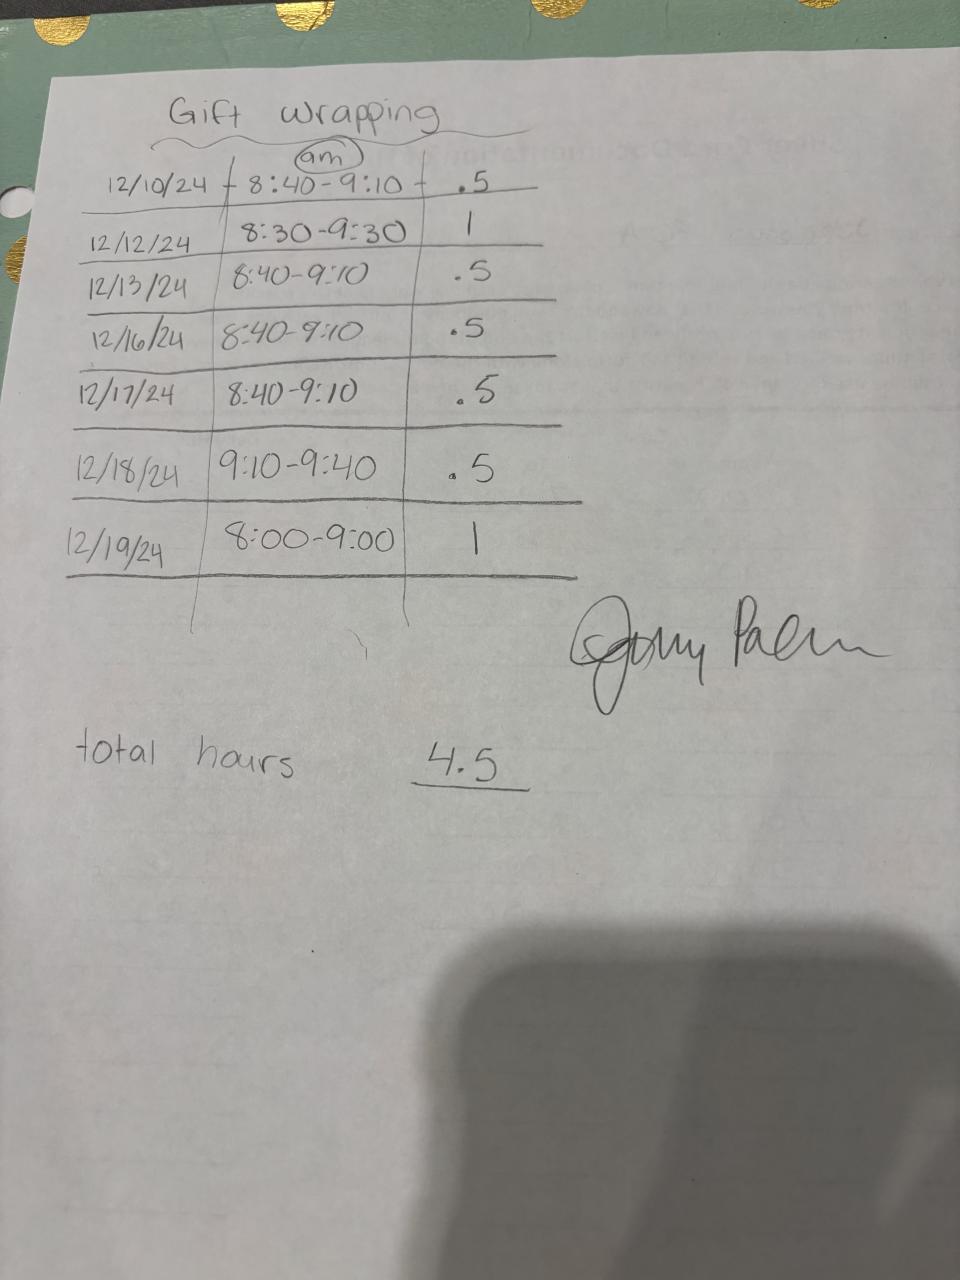 Gift wrapping
am
12/10/24 8:40-9:10 .5
12/12/24 8:30-9:30 1
12/13/24 8:40-9:10 .5
12/16/24 8:40-9:10 .5
12/17/24 8:40-9:10 .5
12/18/24 9:10-9:40 .5
12/19/24 8:00-9:00 1
total hours 4.5